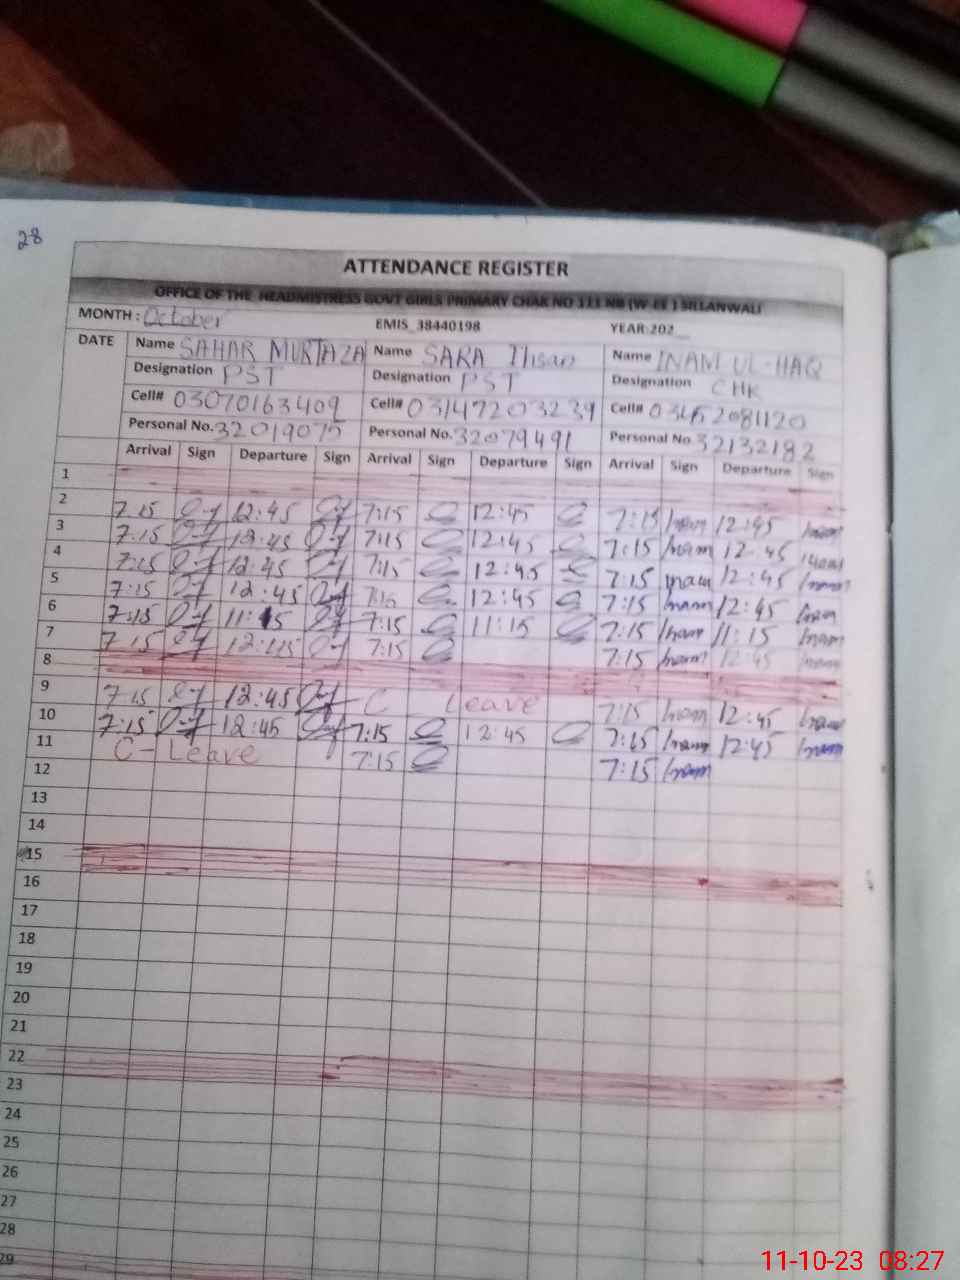 28
ATTENDANCE REGISTER
OFFICE OF THE HEADMISTRESS GOVT GIRLS PRIMARY CHAK NO 111 NB (W-EE) SILLANWALI
MONTH : October EMIS_38440198 YEAR:202__
DATE Name SAHAR MURTAZA Name SARA Ihsan Name INAM UL-HAQ
Designation PST Designation PST Designation CHK
Cell# 03070163409 Cell# 03147203239 Cell# 03452081120
Personal No. 32019075 Personal No. 32079491 Personal No. 32132182
Arrival Sign Departure Sign Arrival Sign Departure Sign Arrival Sign Departure Sign
1
2 7:15 12:45 7:15 12:45 7:15 Inam 12:45 Inam
3 7:15 12:45 7:15 12:45 7:15 Inam 12:45 Inam
4 7:15 12:45 7:15 12:45 7:15 Inam 12:45 Inam
5 7:15 12:45 7:15 12:45 7:15 Inam 12:45 Inam
6 7:15 11:15 7:15 11:15 7:15 Inam 11:15 Inam
7 7:15 7:15 7:15 Inam 12:45 Inam
8
9 7:15 12:45 C Leave 7:15 Inam 12:45 Inam
10 7:15 12:45 7:15 12:45 7:15 Inam 12:45 Inam
11 C-Leave 7:15 7:15 Inam
12
13
14
15
16
17
18
19
20
21
22
23
24
25
26
27
28
29
11-10-23 08:27